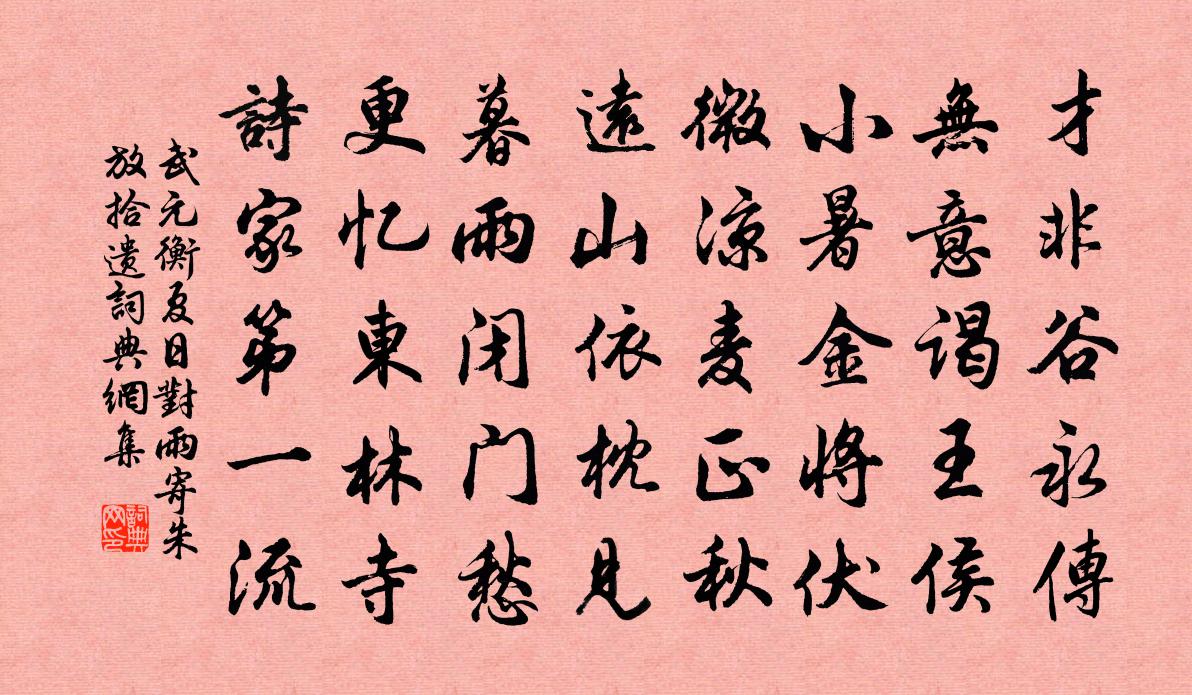 才非谷永傳
無意謁王侯
小暑金將伏
微涼麦正秋
遠山依枕見
暮雨闭门愁
更忆東林寺
詩家第一流
武元衡夏日對雨寄朱
放拾遗詞典網集
詞典
网印